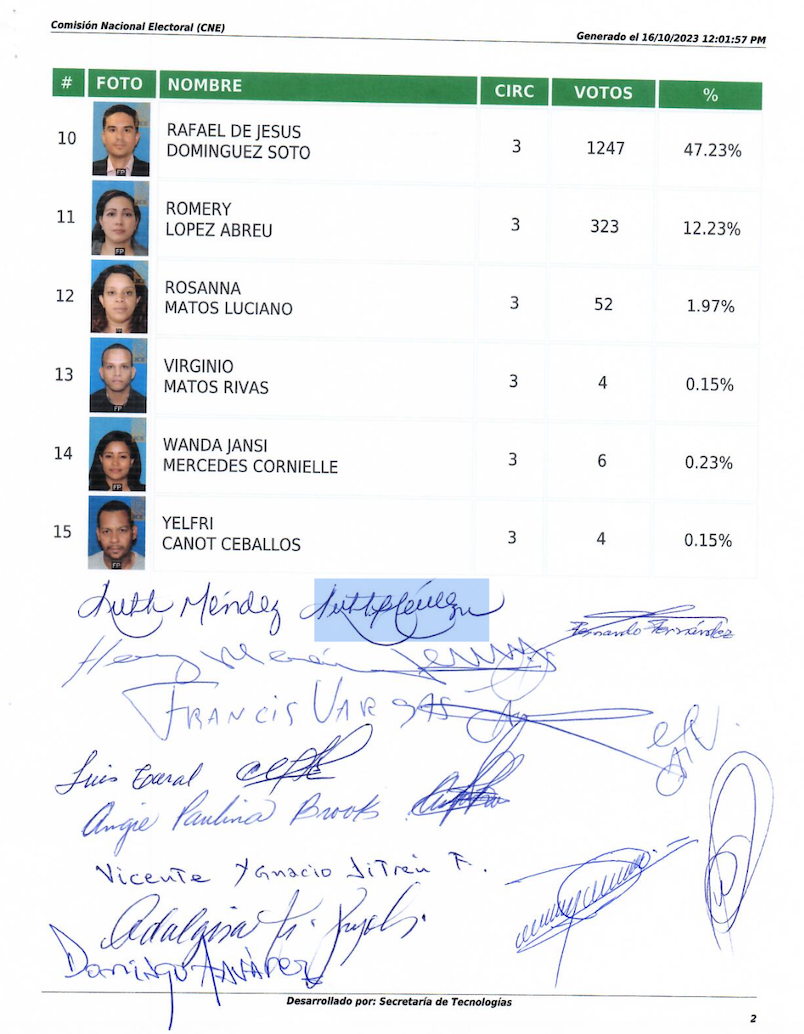 Comisión Nacional Electoral (CNE)
Generado el 16/10/2023 12:01:57 PM
# FOTO NOMBRE CIRC VOTOS %
10 FP RAFAEL DE JESUS DOMINGUEZ SOTO 3 1247 47.23%
11 FP ROMERY LOPEZ ABREU 3 323 12.23%
12 FP ROSANNA MATOS LUCIANO 3 52 1.97%
13 FP VIRGINIO MATOS RIVAS 3 4 0.15%
14 FP WANDA JANSI MERCEDES CORNIELLE 3 6 0.23%
15 FP YELFRI CANOT CEBALLOS 3 4 0.15%
Ruth Méndez
Fernando Fernández
Henry
FRANCIS VARGAS
Luis
Angie Paulina Brooks
Vicente Ygnacio Ditrén F.
Adalgisa
Domingo
Desarrollado por: Secretaría de Tecnologías
2